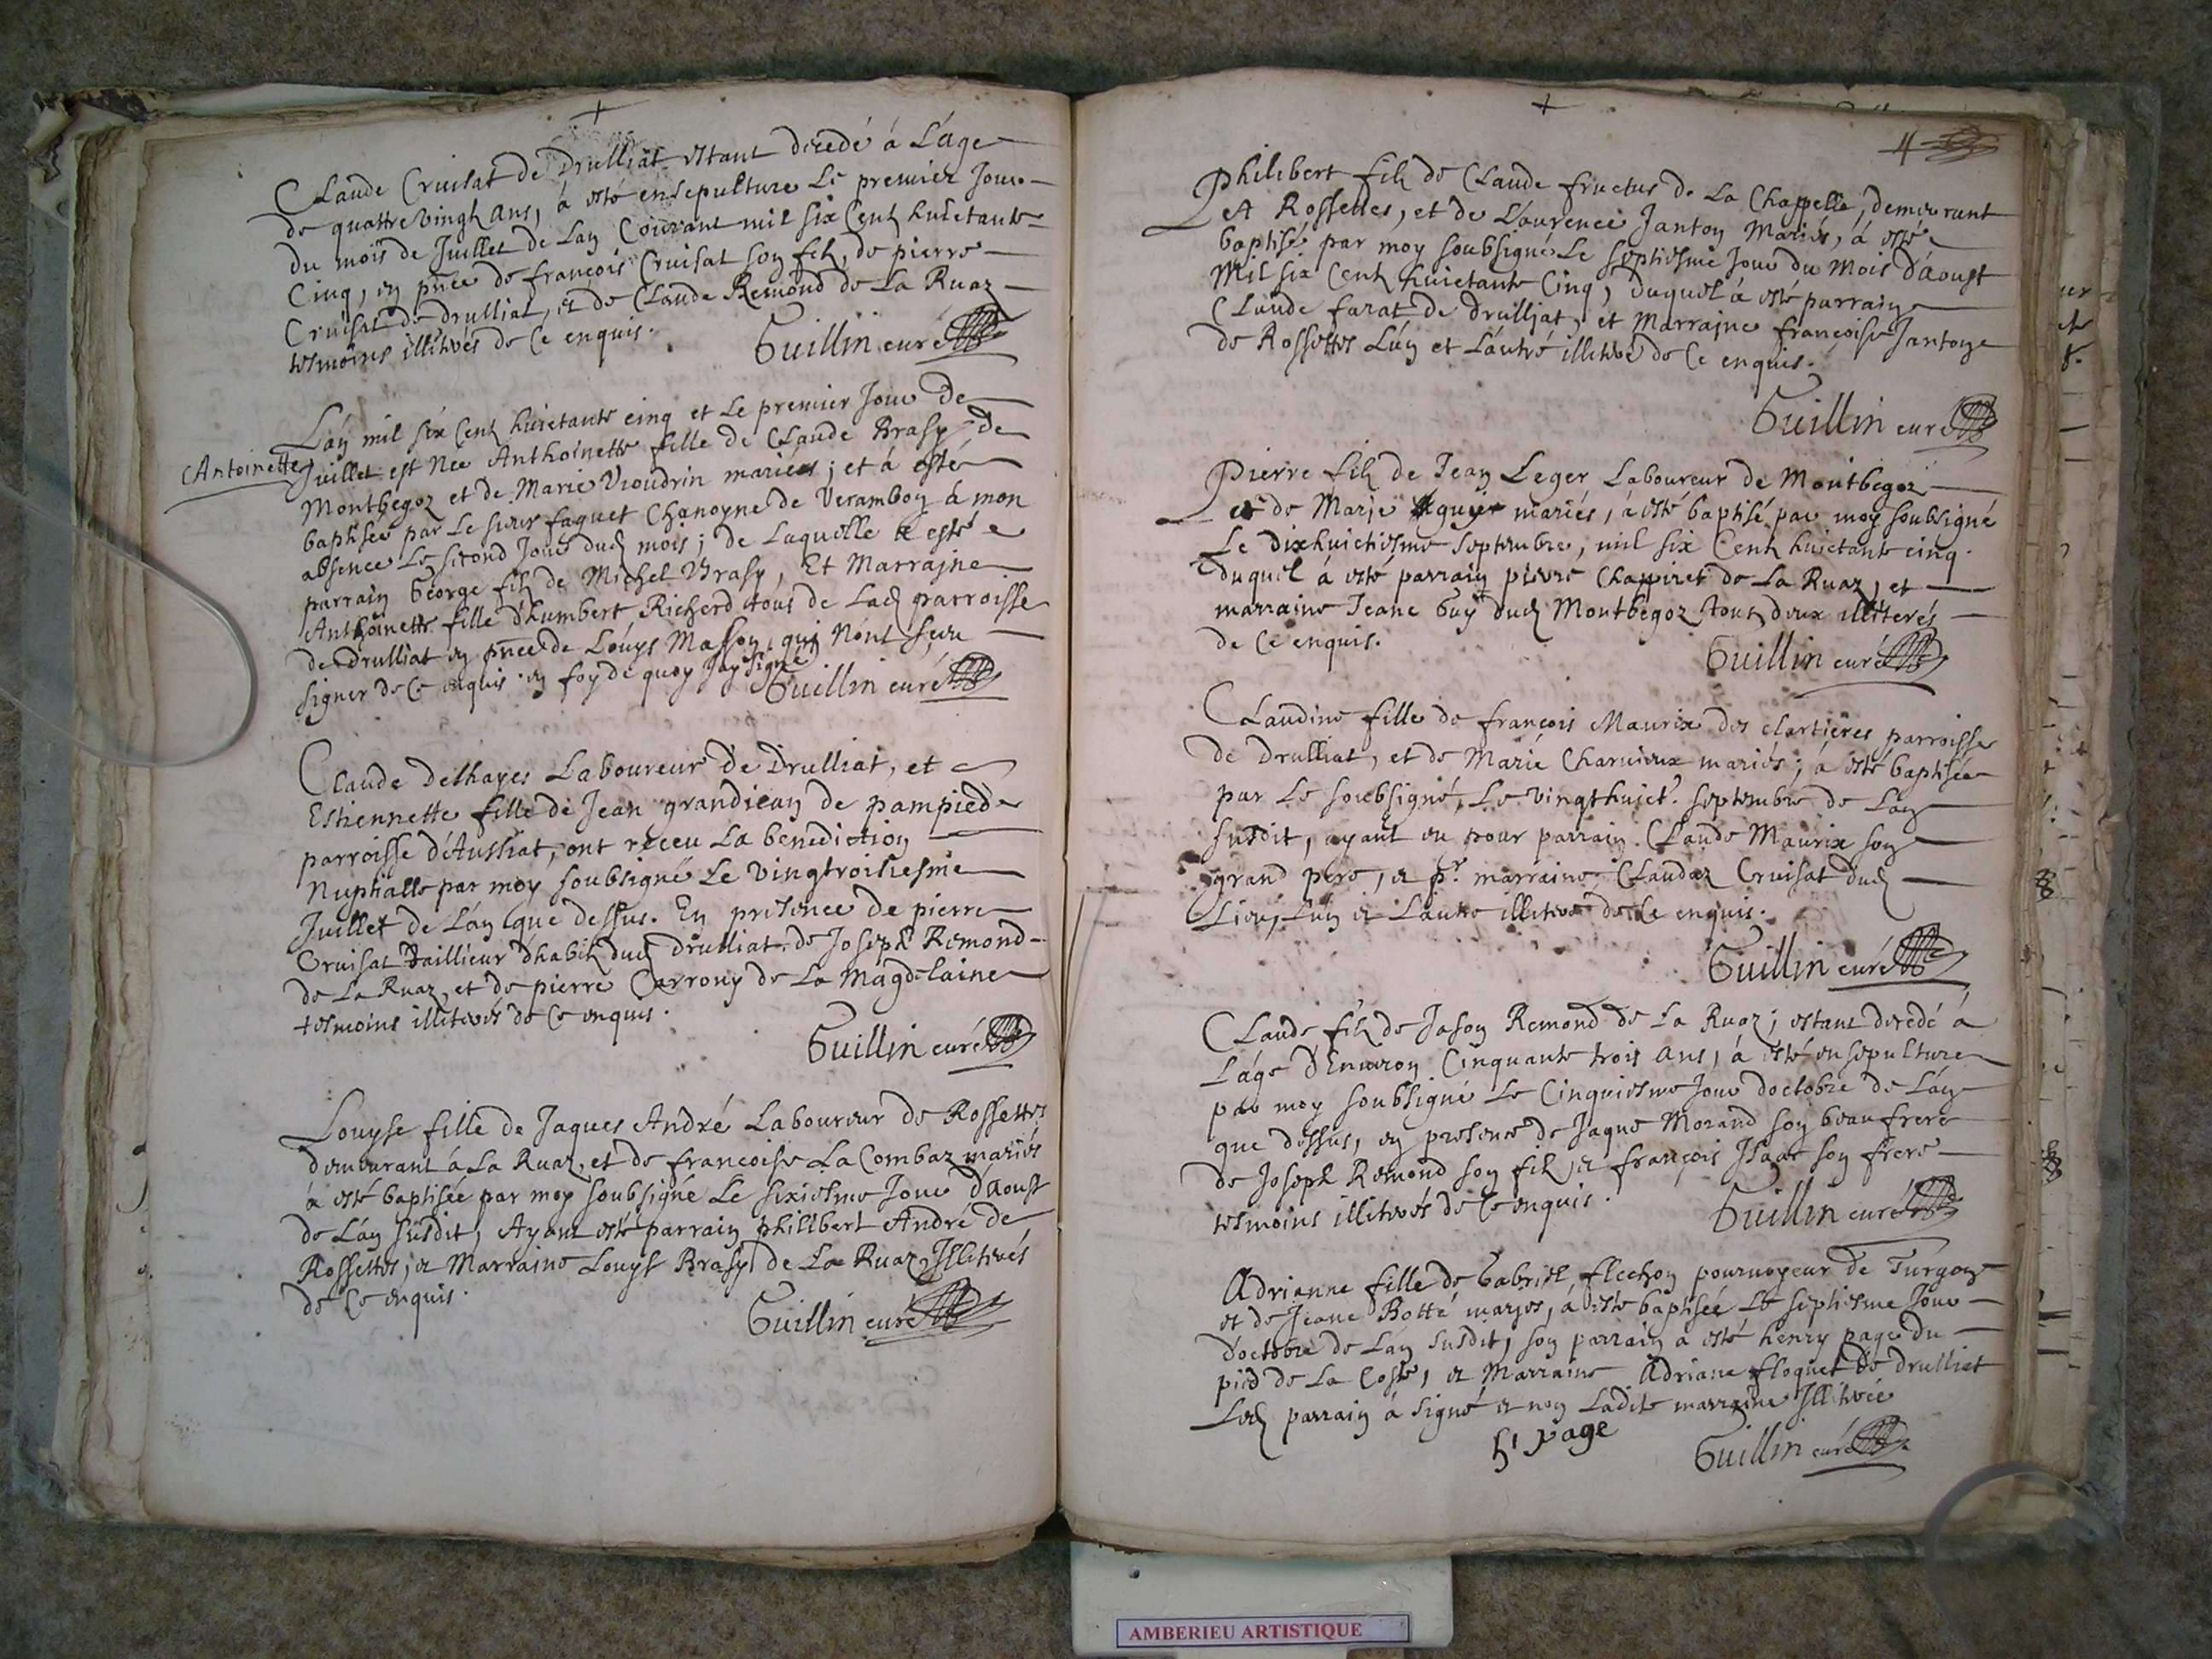 Claude Cruisat de Drulliat estant decedé à L'age
de quattrevingtz ans, à esté ensepulturé Le premier Jour
du mois de Juillet de Lan Courant mil six Centz huictante
Cinq, en pnce de françois Cruisat son filz, de pierre
Cruisat de drulliat, et de Claude Remond de La Ruaz
tesmoins illiterés de Ce enquis.
Guillin curé
Lan mil six Centz huictante cinq et Le premier Jour de
Antoinette
Juillet est Nee Anthoinette fille de Claude Brasy de
Montbegoz et de Marie Vioudrin mariés; et à esté
baptisee par Le sieur faquet Chanoyne de Veramboy à mon
absence Le second Jour dud mois; de Laquelle a esté
parrain George filz de Michel Brasy, Et Marrajne
Anthoinette fille d'humbert Richerd tous de Lad parroisse
de Drulliat en pnce de Louys Masson, qui Nont sceu
signer de Ce enquis. en foy de quoy Jay signé
Guillin curé
Claude delhayes Laboureur de Drulliat, et
Estiennette fille de Jean grandiean de pampied
parroisse d'Aushat, ont receu La benediction
Nuptialle par moy soubsigné Le Vingtroisiesme
Juillet de Lan que dessus. En presence de pierre
Cruisat Taillieur d'habitz dud drulliat, de Joseph Remond
de La Ruaz, et de pierre Carrouy de La Magdelaine
tesmoins illiterés de Ce enquis.
Guillin curé
Louyse fille de Jaques André Laboureur de Rossettes
demeurant à La Ruaz, et de francoise La Combaz mariés
à esté baptisée par moy soubsigné Le sixiesme Jour d'Aoust
de Lan susdit, Ayant esté parrain philibert André de
Rossettes, et Marraine Louyse Brasy de La Ruaz Illiterés
de Ce enquis.
Guillin curé
4
Philibert filz de Claude fructus de La Chappelle, demeurant
et Rossettes, et de Laurence Janton Mariés, à esté
baptisé par moy soubsigné Le septiesme Jour du Mois d'aoust
Mil six Centz huictante Cinq, duquel à esté parrain
Claude farat de drulliat, et Marrajne françoise Jantone
de Rossettes L'un et L'autre illiteré de Ce enquis.
Guillin curé
Pierre filz de Jean Leger Laboureur de Montbegoz
et de Marie mariés, à esté baptisé par moy soubsigné
Le dixhuictiesme septembre, mil six Centz huictante cinq.
duquel à esté parrain pierre Chappiret de La Ruaz, et
marraine Jeane Guy dud Montbegoz tout deux illiterés
de Ce enquis.
Guillin curé
Claudine fille de françois Maurix des clartieres parroisse
de Drulliat, et de Marie Charvieux mariés; à esté baptisée
par Le soubsigné, Le vingthuict.e septembre de Lan
susdit, ayant eu pour parrain Claude Maurix son
grand pere, et p.r marraine Claudaz Cruisat dud
Lieu, Lun et Lautre illiteré de Ce enquis.
Guillin curé
Claude filz de Jason Remond de La Ruaz; estant decedé à
L'age d'Environ Cinquante trois ans, à esté ensepulturé
par moy soubsigné Le Cinquiesme Jour doctobre de Lan
que dessus, en presence de Jaque Morand son beaufrere
de Joseph Remond son filz, et françois Isaac son frere
tesmoins illiterés de Ce enquis.
Guillin curé
Adrianne fille de Gabriel flechon pourvoyeur de Turgon
et de Jeane Botté maryes, à esté baptisée Le septiesme Jour
d'octobre de Lan susdit, son parrain a esté henry page du
pied de La Coste, et Marraine Adriane floquet de drulliat
Led parrain à signé et non Ladite marraine Illiterée
h page
Guillin curé
AMBERIEU ARTISTIQUE